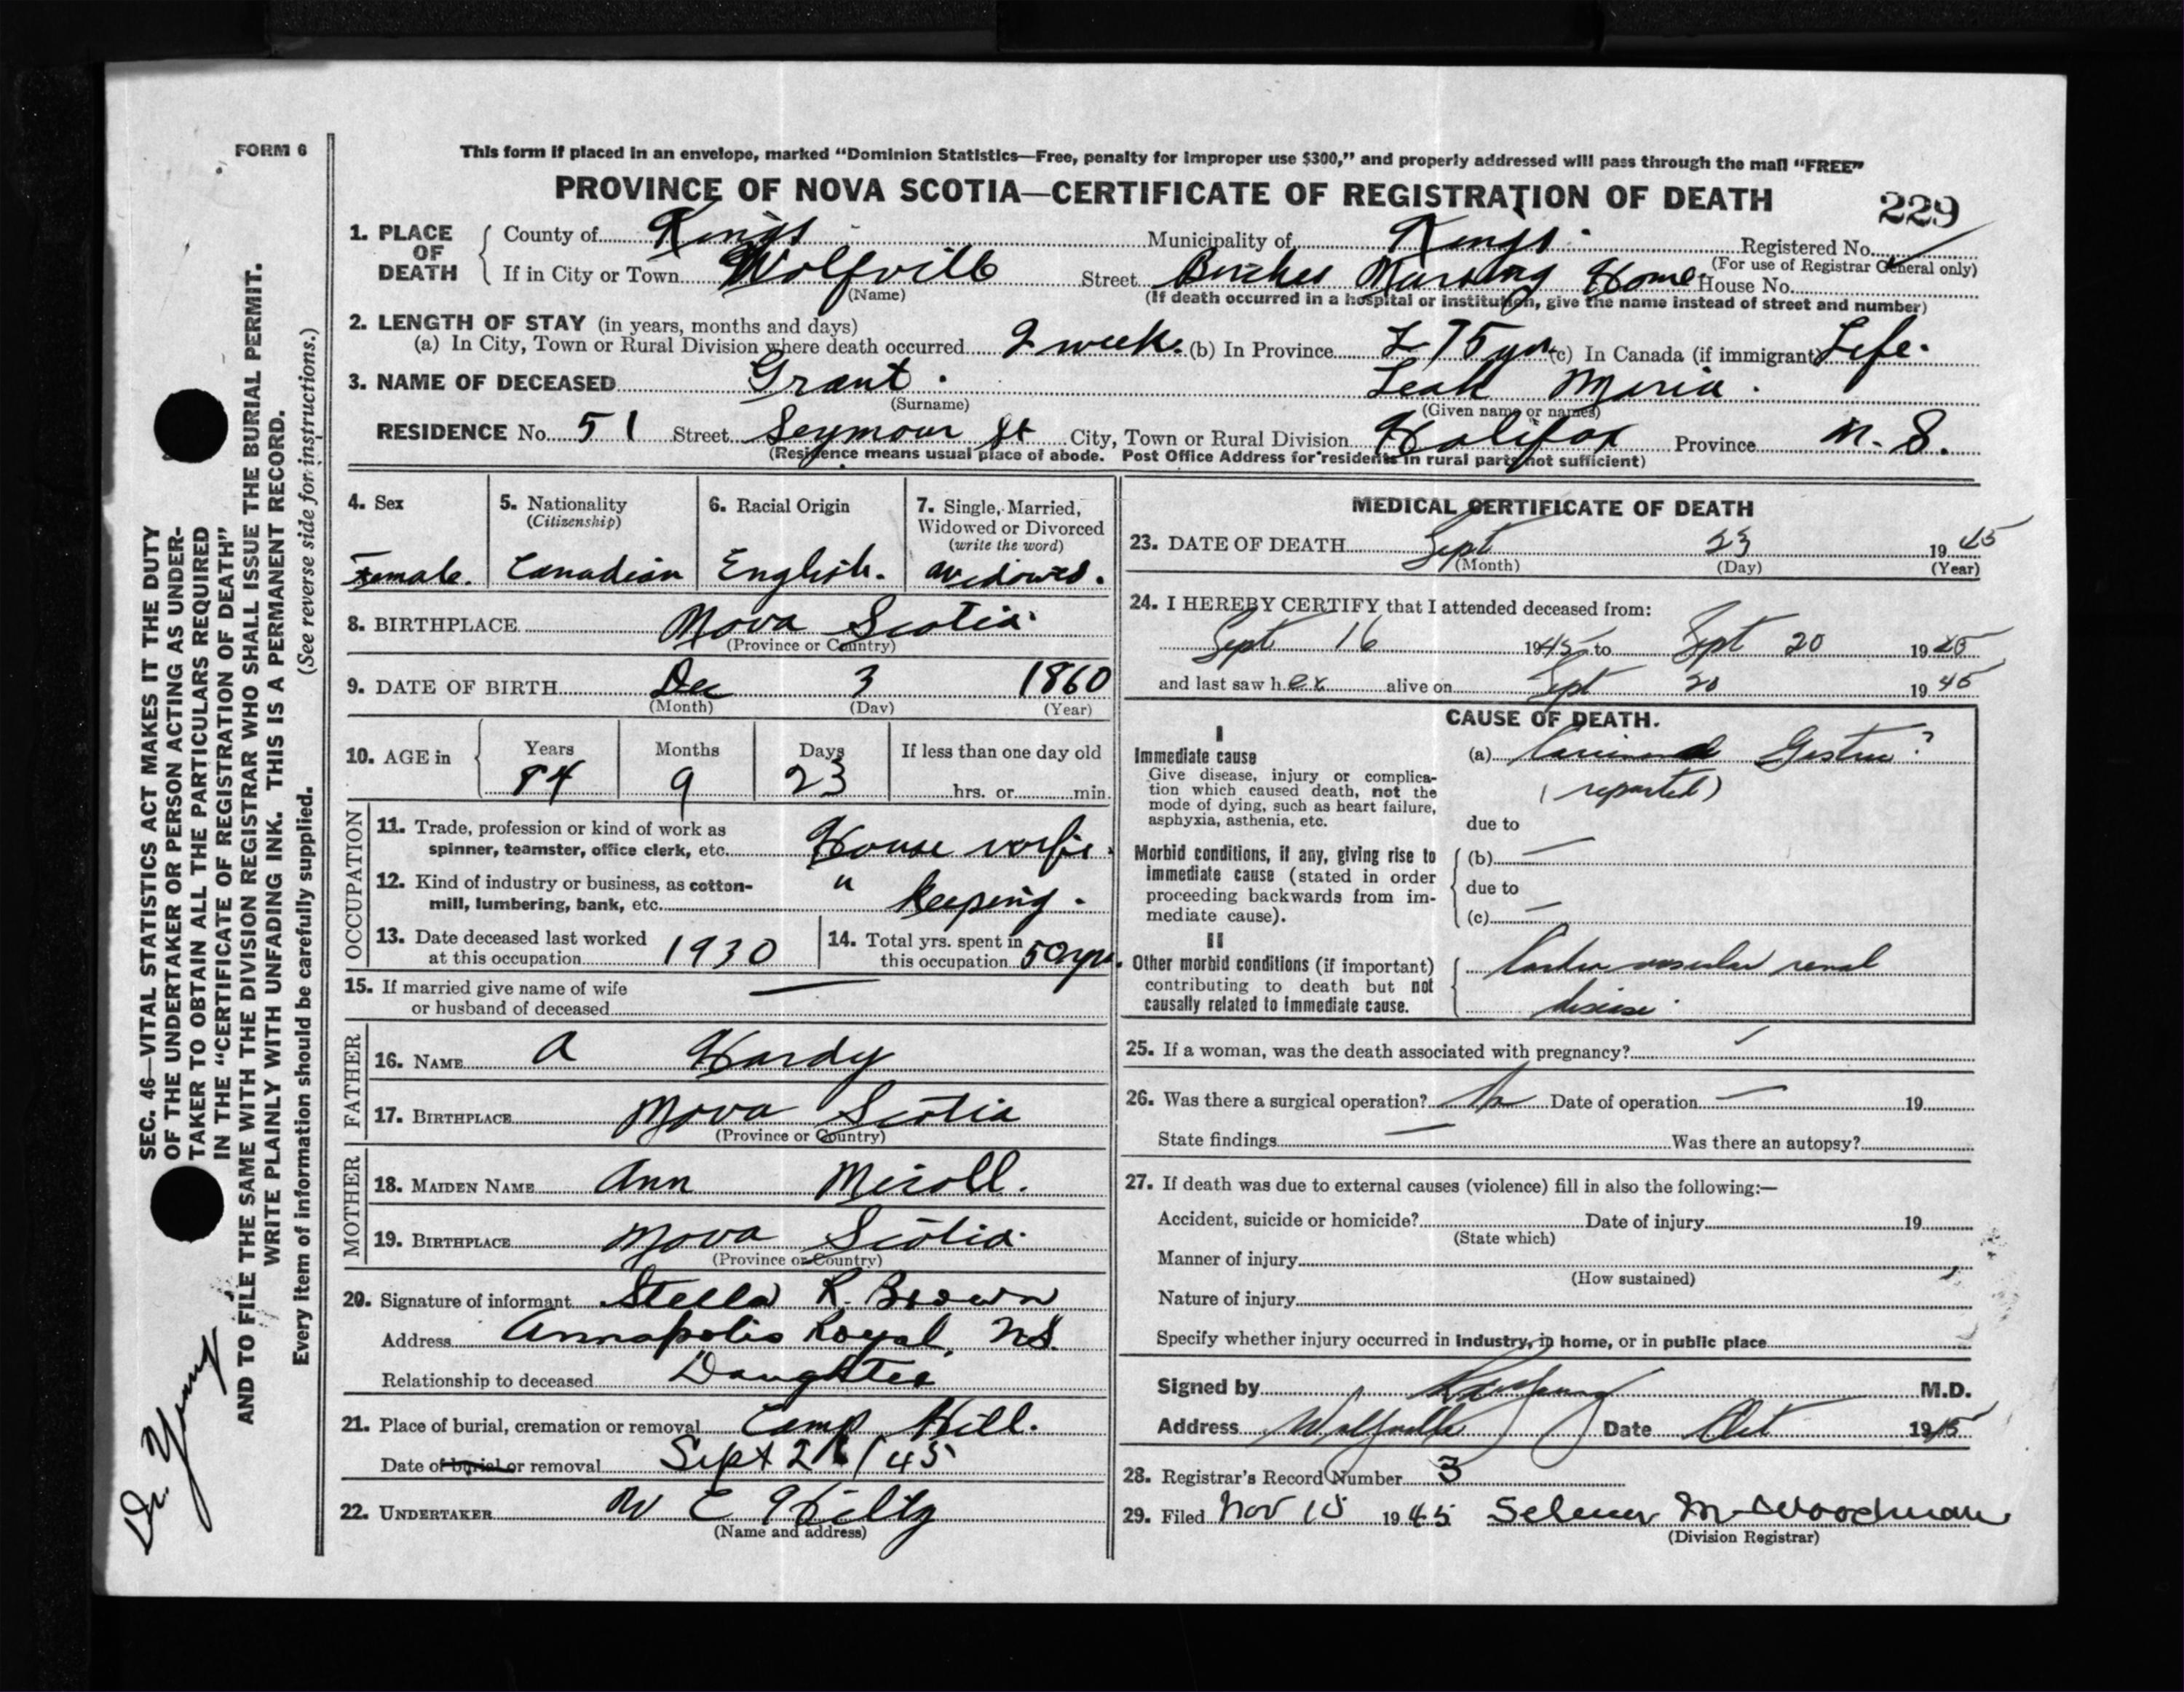 FORM 6
This form if placed in an envelope, marked “Dominion Statistics—Free, penalty for improper use $300,” and properly addressed will pass through the mail “FREE”
PROVINCE OF NOVA SCOTIA—CERTIFICATE OF REGISTRATION OF DEATH
229
1. PLACE OF DEATH
County of Kings Municipality of Kings Registered No.
(For use of Registrar General only)
If in City or Town Wolfville Street Birches Nursing Home House No.
(Name) (If death occurred in a hospital or institution, give the name instead of street and number)
2. LENGTH OF STAY (in years, months and days)
(a) In City, Town or Rural Division where death occurred 2 week. (b) In Province 75 yrs (c) In Canada (if immigrant) Life.
3. NAME OF DECEASED Grant. Leah Maria.
(Surname) (Given name or names)
RESIDENCE No. 51 Street Seymour St City, Town or Rural Division Halifax Province N. S.
(Residence means usual place of abode. Post Office Address for residents in rural parts not sufficient)
4. Sex
Female.
5. Nationality
(Citizenship)
Canadian
6. Racial Origin
English.
7. Single, Married,
Widowed or Divorced
(write the word)
Widowed.
8. BIRTHPLACE Nova Scotia.
(Province or Country)
9. DATE OF BIRTH Dec 3 1860
(Month) (Day) (Year)
10. AGE in
Years Months Days If less than one day old
84 9 23 hrs. or min.
OCCUPATION
11. Trade, profession or kind of work as
spinner, teamster, office clerk, etc. House wife.
12. Kind of industry or business, as cotton-
mill, lumbering, bank, etc. " keeping.
13. Date deceased last worked
at this occupation 1930
14. Total yrs. spent in
this occupation 50 yrs.
15. If married give name of wife
or husband of deceased —
FATHER
16. NAME A Hardy
17. BIRTHPLACE Nova Scotia
(Province or Country)
MOTHER
18. MAIDEN NAME Ann
19. BIRTHPLACE Nova Scotia.
(Province or Country)
20. Signature of informant Stella R. Brown
Address Annapolis Royal, N.S.
Relationship to deceased Daughter
21. Place of burial, cremation or removal Camp Hill.
Date of burial or removal Sept
22. UNDERTAKER W C Hiltz
(Name and address)
MEDICAL CERTIFICATE OF DEATH
23. DATE OF DEATH Sept 23 1945
(Month) (Day) (Year)
24. I HEREBY CERTIFY that I attended deceased from:
Sept 16 1945 to Sept 20 1945
and last saw her alive on Sept 20 1945
CAUSE OF DEATH.
I
Immediate cause
Give disease, injury or complica-
tion which caused death, not the
mode of dying, such as heart failure,
asphyxia, asthenia, etc.
(a) ?
(reported)
due to
Morbid conditions, if any, giving rise to
immediate cause (stated in order
proceeding backwards from im-
mediate cause).
(b) —
due to
(c) —
II
Other morbid conditions (if important)
contributing to death but not
causally related to immediate cause.
vascular renal
disease.
25. If a woman, was the death associated with pregnancy?
26. Was there a surgical operation? No Date of operation — 19
State findings — Was there an autopsy?
27. If death was due to external causes (violence) fill in also the following:—
Accident, suicide or homicide? Date of injury 19
(State which)
Manner of injury
(How sustained)
Nature of injury
Specify whether injury occurred in industry, in home, or in public place
Signed by M.D.
Address Wolfville Date Oct 1945
28. Registrar's Record Number 3
29. Filed Nov 15 1945 M Woodman
(Division Registrar)
SEC. 46—VITAL STATISTICS ACT MAKES IT THE DUTY
OF THE UNDERTAKER OR PERSON ACTING AS UNDER-
TAKER TO OBTAIN ALL THE PARTICULARS REQUIRED
IN THE “CERTIFICATE OF REGISTRATION OF DEATH”
AND TO FILE THE SAME WITH THE DIVISION REGISTRAR WHO SHALL ISSUE THE BURIAL PERMIT.
WRITE PLAINLY WITH UNFADING INK. THIS IS A PERMANENT RECORD.
Every item of information should be carefully supplied. (See reverse side for instructions.)
Dr. Young